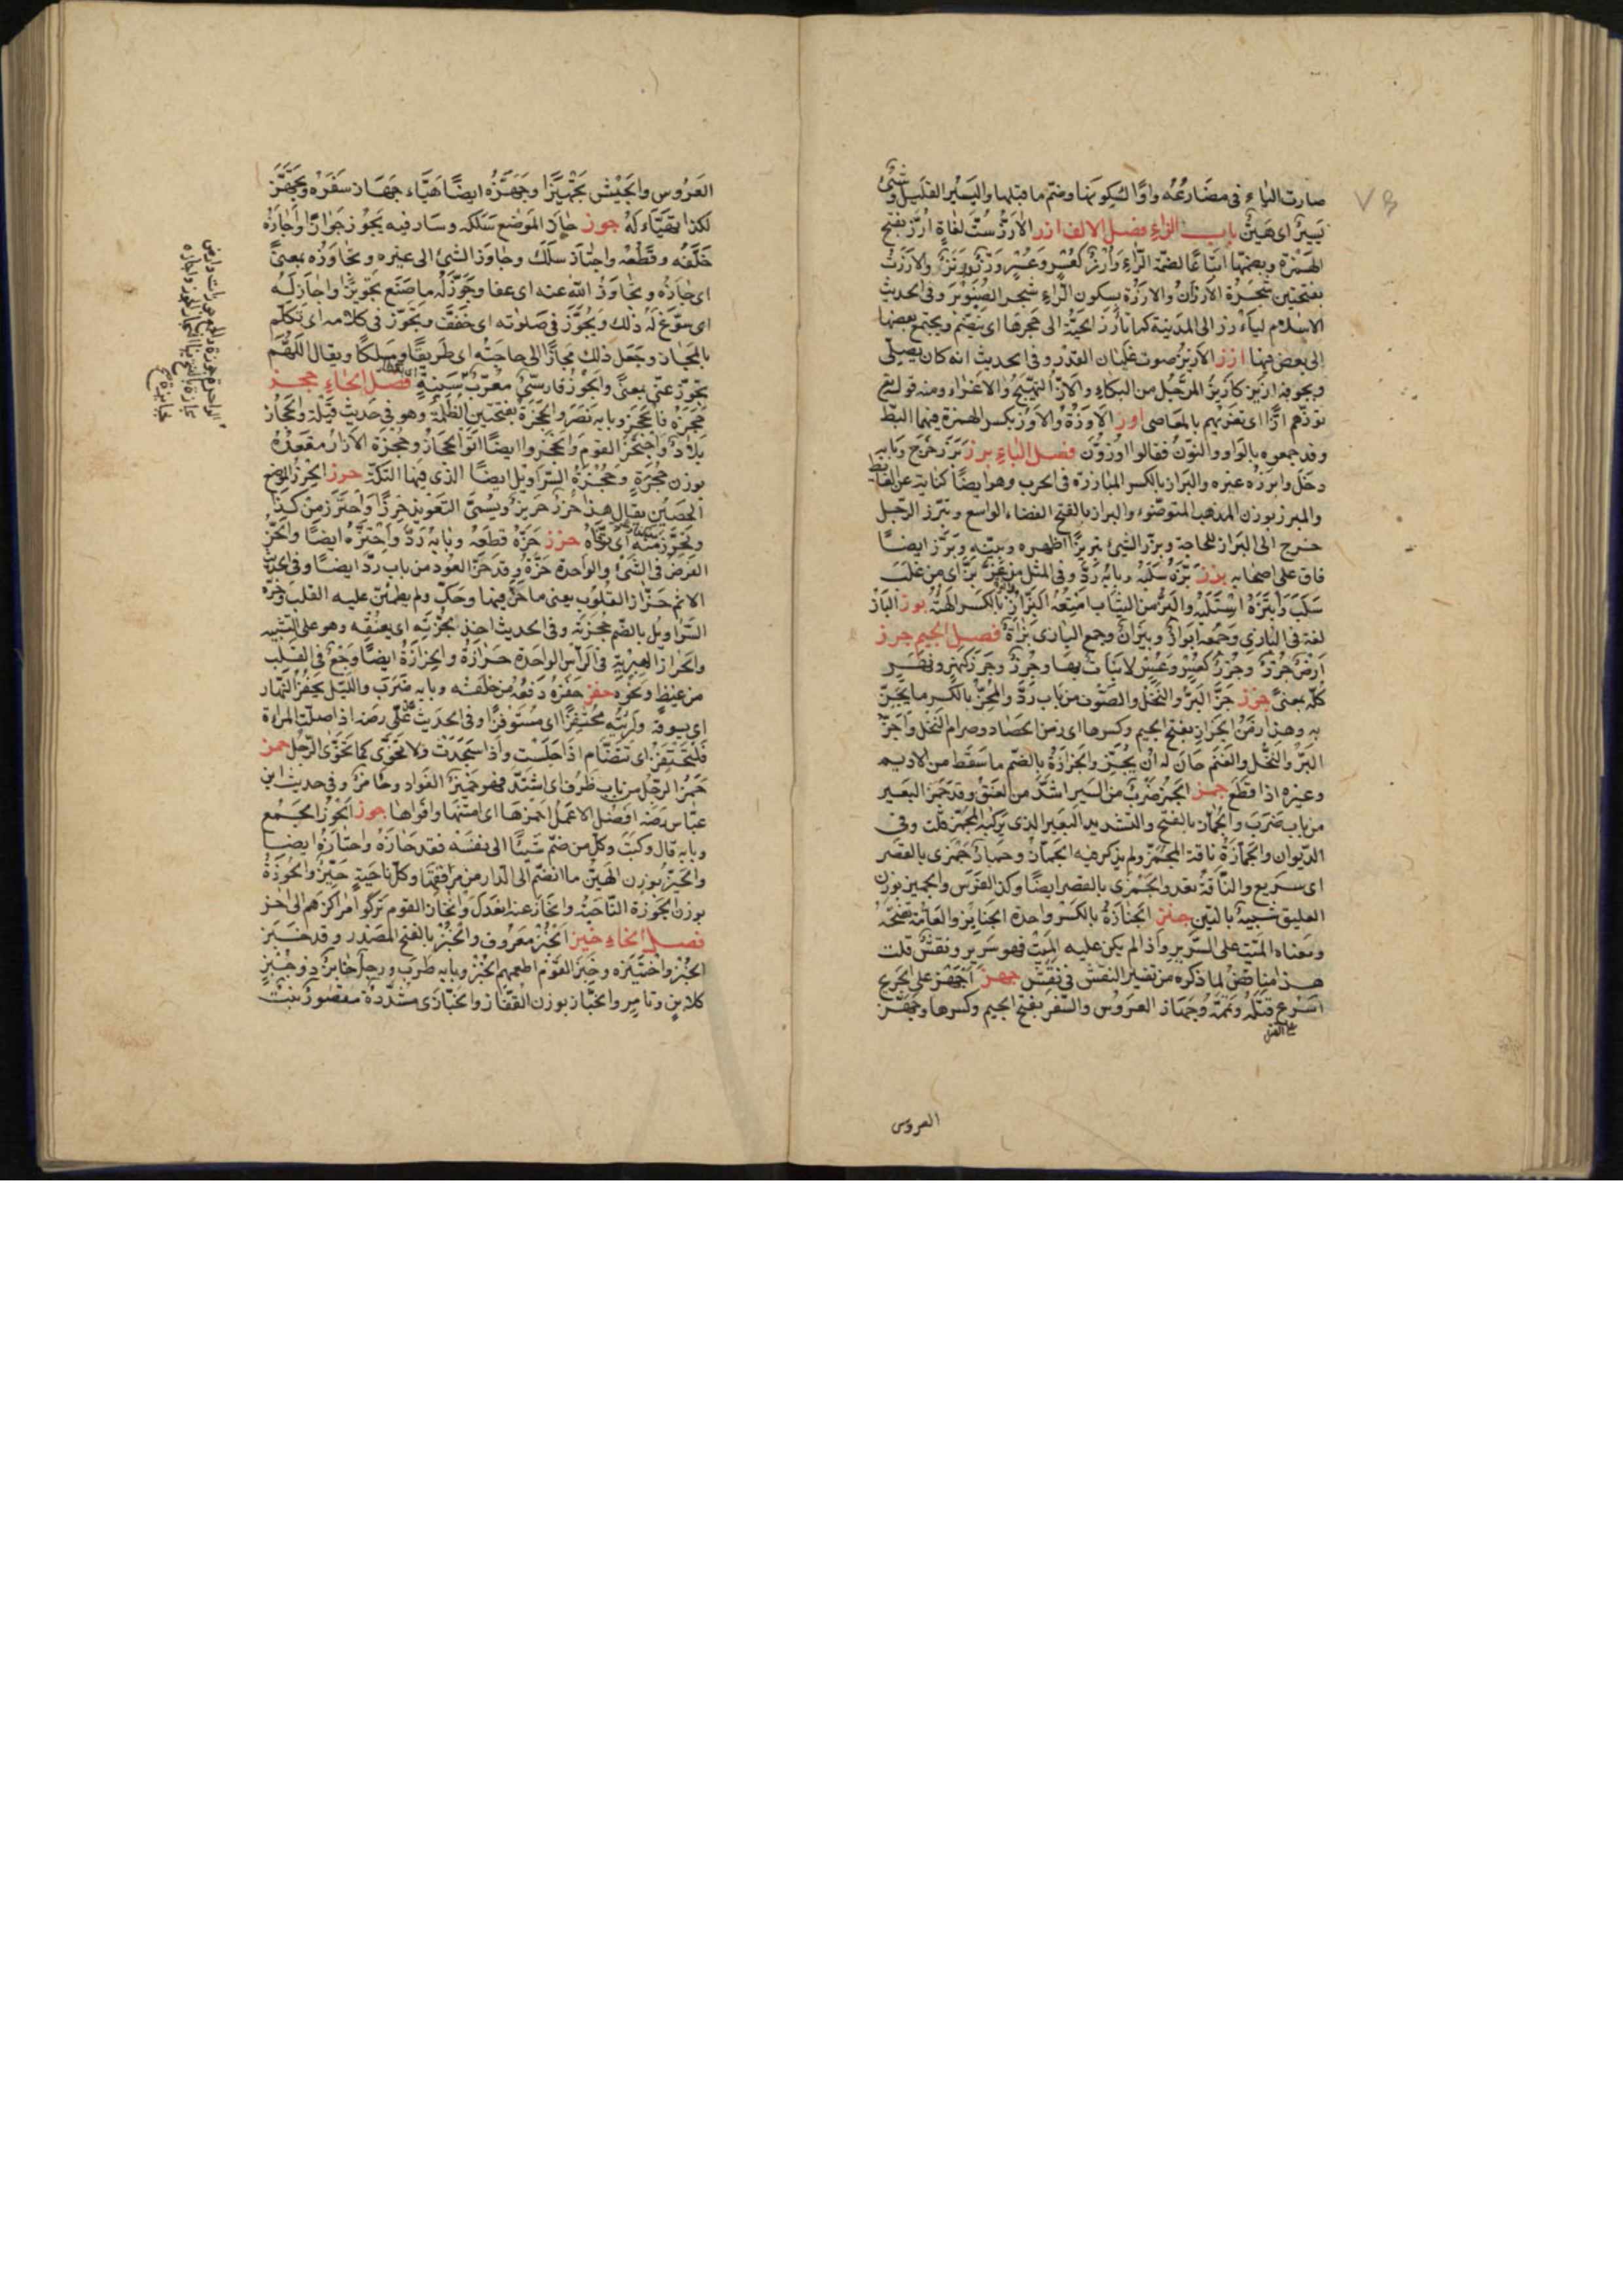 صارت الياء في مضارعه واوًا لسكونها وضم ما قبلها واليسير القليل وشيء
يسير اى هين باب الزاء فصل الالف ارز الارز ست لغاة ارز بفتح
الهمزة وبضمها اتباعًا لضمة الراء وارز كعسر وعسر ورز ورنز والارزة
بفتحتين شجرة الارزن والارزة بسكون الراء شجر الصنوبر وفى الحديث ان
الاسلام ليأرز الى المدينة كما تأرز الحية الى جحرها اى ينضم ويجتمع بعضها
الى بعض فيها ازز الازيز صوت غليان القدر وفى الحديث انه كان يصلى
وبجوفه ازيز كازيز المرجل من البكاء والاز التهييج والاغراء ومنه قوله تع
توزهم ازا اى تغريهم بالمعاصى اوز الاوزة والاوز بكسر الهمزة فيهما البط
وقد جمعوه بالواو والنون فقالوا اوزون فصل الباء برز برز خرج وبابه
دخل وابرزه غيره والبراز بالكسر المبارزة فى الحرب وهو ايضًا كناية عن الغائط
والمبرز بوزن المذهب المتوضئ والبراز بالفتح الفضاء الواسع وتبرز الرجل
خرج الى البراز للحاجة وبرز الشيئ تبريزًا اظهره وبينه وبرز ايضًا
فاق على اصحابه بزز بزه سلبه وبابه رد وفى المثل من عز بز اى من غلب
سلب وابتزه استلبه والبز من الثياب امتعة البزاز والبزة بالكسر الهيئة بوز الباز
لغة فى البازى وجمعه ابواز وبيزان وجمع البازى بزاة فصل الجيم جرز
ارض جرز وجرز كعسر وعسر لا نبات بها وجرز وجرز كنهر ونهر
كله بمعنى جزز جز البر والنخل والصوف من باب رد والمجز بالكسر ما يجز
به وهذا زمن الجزاز بفتح الجيم وكسرها اى زمن الحصاد وصرام النخل واجز
البر والنخل والغنم حان له ان يجز والجزازة بالضم ما سقط من الاديم
وغيره اذا قطع جمز الجمز ضرب من السير اشد من العنق وقد جمز البعير
من باب ضرب والجماز بالفتح والتشديد البعير الذى يركبه المجمز قلت وفى
الديوان والجمازة ناقة المجمز ولم يذكر فيه الجماز وحمار جمزى بالقصر
اى سريع والناقة تعدو الجمزى بالقصر ايضًا وكذا الفرس والجميز بوزن
العليق شبيه بالتين جنز الجنازة بالكسر واحدة الجنايز والعامة تفتحه
ومعناه الميت على السرير واذا لم يكن عليه الميت فهو سرير ونعش قلت
هذا مناقض لما ذكره من تفسير النعش فى نعش جهز اجهز على الجريح
اسرع قتله وتممه وجهاز العروس والسفر بفتح الجيم وكسرها وجهز
العروس
العروس والجيش تجهيزًا وجهزه ايضًا هيّاء جهاز سفره وتجهز
لكذا تهيّاء له جوز جاز الموضع سلكه وسار فيه يجوز جوازًا واجازه
خلفه وقطعه واجتاز سلك وجاوز الشئ الى غيره وتجاوزه بمعنى
اى جازه وتجاوز الله عنه اى عفا وجوز له ما صنع تجويزًا واجاز له
اى سوغ له ذلك وتجوز فى صلوته اى خفف وتجوز فى كلامه اى تكلم
بالمجاز وجعل ذلك مجازًا الى حاجته اى طريقًا ومسلكًا ويقال اللهم
تجوز عنى بمعنى والجوز فارسى معرب فصل الحاء حجز
حجزه فانحجز وبابه نصر والحجزة بفتحتين الظلمة وهو فى حديث قيلة والحجاز
بلاد واحتجز القوم وانحجزوا ايضًا اتوا الحجاز وحجزة الازار معقده
بوزن حجرة وحجزة السراويل ايضًا الذى فيها التكة حرز الحرز الموضع
الحصين يقال هذا حرز حريز ويسمى التعويذ حرزًا واحترز من كذا
وتحرز منه اى توقاه حزز حزه قطعه وبابه رد واحتزه ايضًا والحز
الفرض فى الشئ والواحدة حزة وقد حز العود من باب رد ايضًا وفى الحديث
الاثم حزاز القلوب يعنى ما حز فيها وحك ولم يطمئن عليه القلب وحزة
السراويل بالضم حجزته وفى الحديث اخذ بحجزته اى بعنقه وهو على التشبيه
والحزاز الهبرية فى الراس الواحدة حزازة والحزازة ايضًا وجع فى القلب
من غيظ ونحوه حفز حفزه دفعه من خلفه وبابه ضرب والليل يحفز النهار
اى يسوقه ورايته محتفزًا اى مستوفزًا وفى الحديث على رضه اذا صلت المراة
فلتحتفز اى تتضام اذا جلست واذا سجدت ولا تخوى كما يخوى الرجل حمز
حمز الرجل من باب ظرف اى اشتد فهو حميز الفواد وحامز وفى حديث ابن
عباس رضه افضل الاعمال احمزها اى امتنها واقواها حوز الحوز الجمع
وبابه قال وكتب وكل من ضم شيئًا الى نفسه فقد حازه واحتازه ايضا
والحيز بوزن الهين ما انضم الى الدار من مرافقها وكل ناحية حيز والحوزة
بوزن الجوزة الناحية وانحاز عنه انعدل وانحاز القوم تركوا مراكزهم الى اخر
فصل الخاء خبز الخبز معروف والخبز بالفتح المصدر وقد خبز
الخبز واختبزه وخبز القوم اطعمهم الخبز وبابه ضرب ورجل خابز ذو خبز
كلابن وتامر والخباز بوزن القفاز والخبازى مشددة مقصور نبت